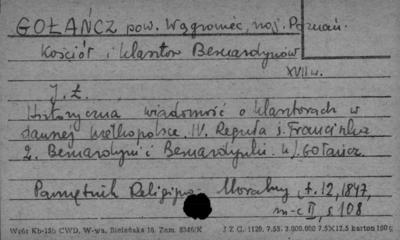 GOŁAŃCZ pow. Wągrowiec, woj. Poznań.
Kościół i klasztor Bernardynów
XVII w.
J. Ł.
Historyczna wiadomość o klasztorach w
dawnej Wielkopolsce. IV. Reguła ś. Franciszka
2. Bernardyni i Bernardynki. k/ Gołańcz.
Pamiętnik Religijno-Moralny, t. 12, 1847,
m-c II, s 108
Wzór Kb-15b CWD, W-wa, Bielańska 18 Zam. 8346/K J Z G. 1129. 7.55. 3.000.000 7.5×12.5 karton 190 g.